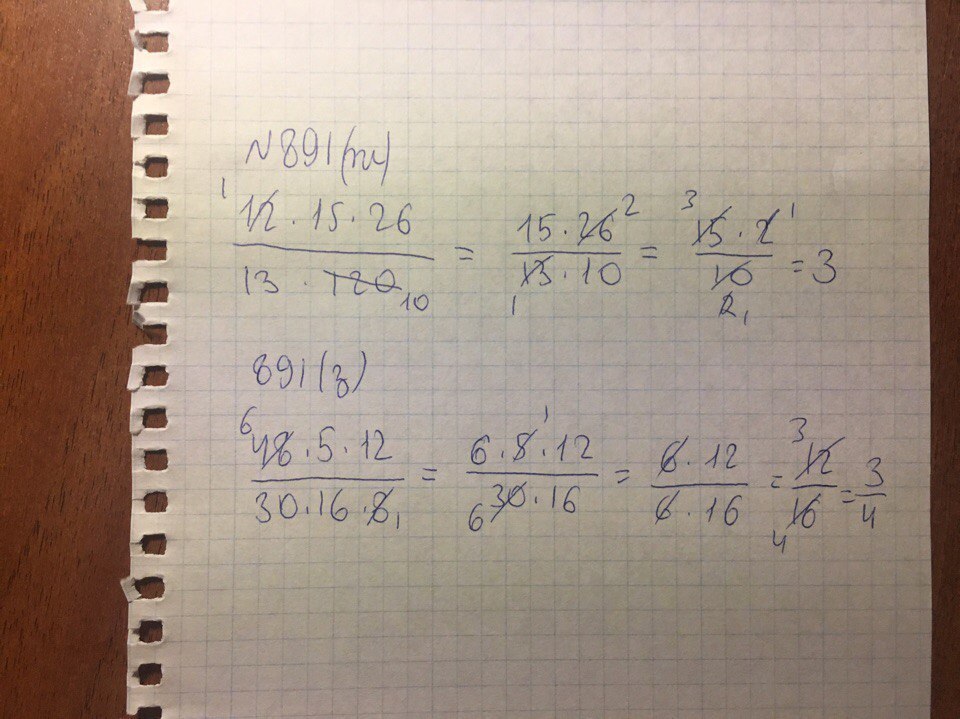 № 891(ж)
1 12 · 15 · 26 / 13 · 120 10 = 15 · 26 2 / 13 1 · 10 = 3 15 · 2 1 / 10 2 1 = 3
891(з)
6 48 · 5 · 12 / 30 · 16 · 8 1 = 6 · 5 1 · 12 / 6 30 · 16 = 6 · 12 / 6 · 16 = 3 12 / 4 16 = 3 / 4